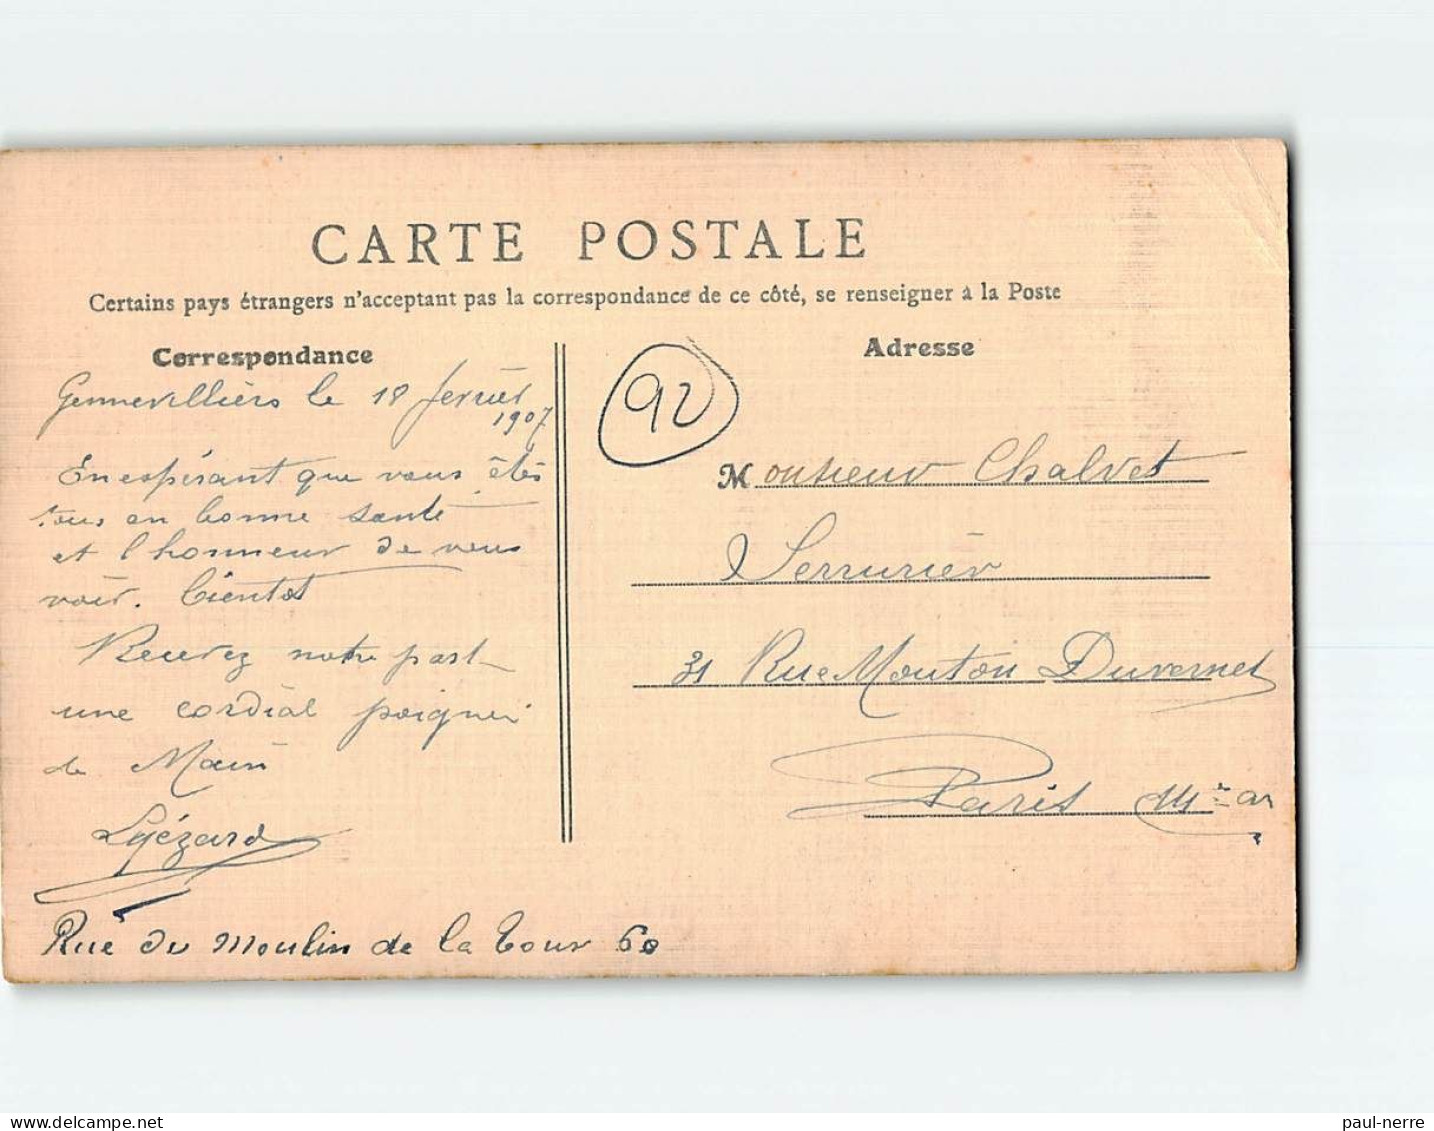 CARTE POSTALE
Certains pays étrangers n'acceptant pas la correspondance de ce côté, se renseigner à la Poste
Correspondance
Gennevilliers le 18 ferrier
1907
En espérant que vous êtes
tous en bonne santé
et l'honneur de vous
voir. bientot
Recevez notre part
une cordial poignée
de Main
Rue du Moulin de la Tour 60
92
Adresse
Monsieur Chalvet
Serrurier
31 Rue Mouton Duvernet
Paris
delcampe.net
paul-nerre